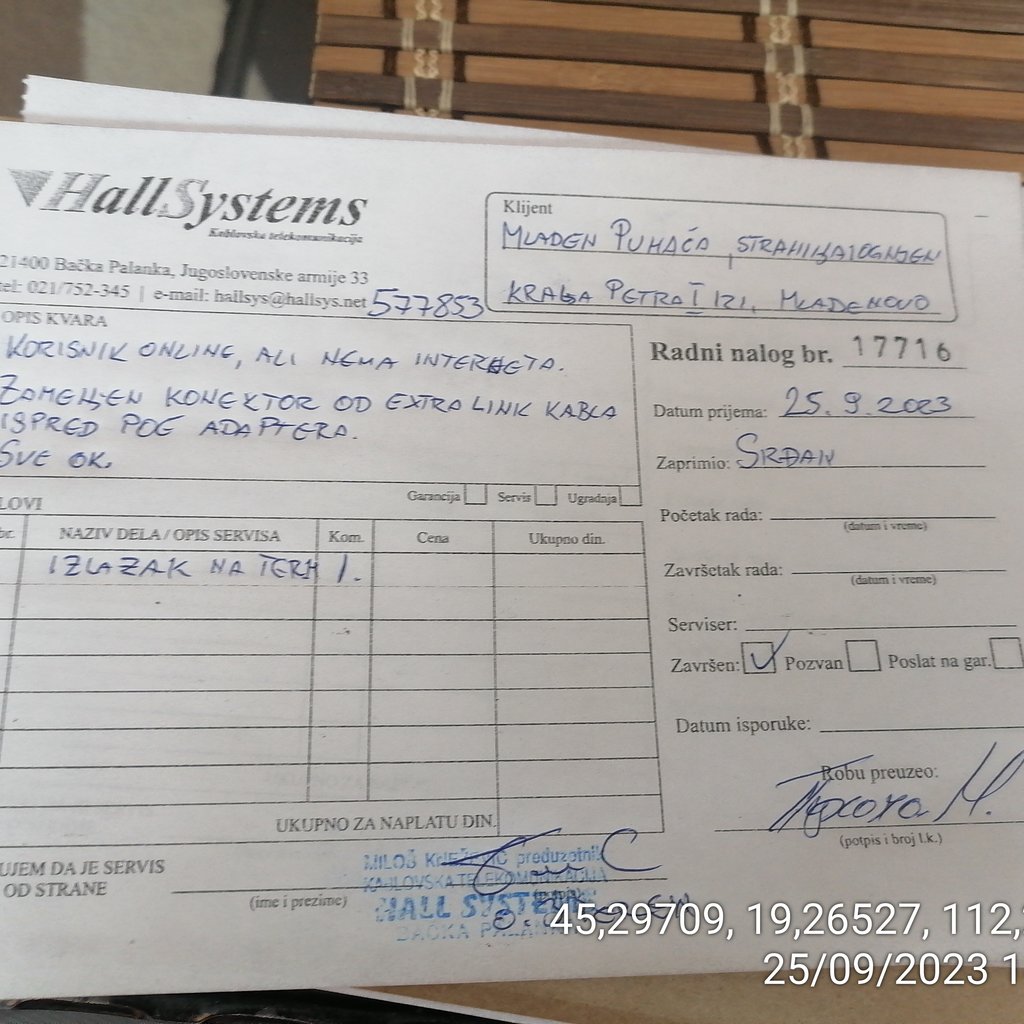 HallSystems
Kablovske telekomunikacije
21400 Bačka Palanka, Jugoslovenske armije 33
tel: 021/752-345 | e-mail: hallsys@hallsys.net
577853
Klijent
MLADEN PUHAČA, STRAHINJA10GNJEN
KRALJA PETRA I 121, MLADENOVO
OPIS KVARA
KORISNIK ONLINE, ALI NEMA INTERNETA.
ZAMENJEN KONEKTOR OD EXTRALINK KABLA
ISPRED POE ADAPTERA.
SVE OK.
Radni nalog br. 17716
Datum prijema: 25.9.2023
Zaprimio: SRĐAN
Početak rada:
(datum i vreme)
Završetak rada:
(datum i vreme)
Serviser:
Završen: Pozvan Poslat na gar.
Datum isporuke:
Robu preuzeo:
(potpis i broj l.k.)
LOVI
Garancija Servis Ugradnja
br. NAZIV DELA / OPIS SERVISA Kom. Cena Ukupno din.
IZLAZAK NA TERH 1.
UKUPNO ZA NAPLATU DIN.
UJEM DA JE SERVIS
OD STRANE
(ime i prezime)
MILOŠ KNEŽEVIĆ preduzetnik
KABLOVSKA TELEKOMUNIKACIJA
HALL SYSTEMS
BAČKA PALANKA
45,29709, 19,26527, 112,
25/09/2023 1